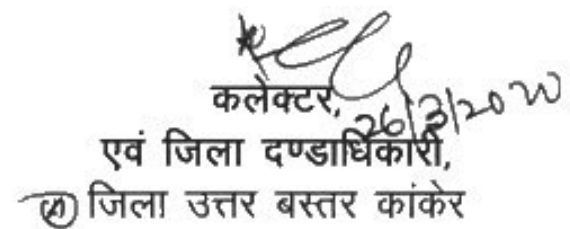 कलेक्टर,
26/3/2020
एवं जिला दण्डाधिकारी,
जिला उत्तर बस्तर कांकेर